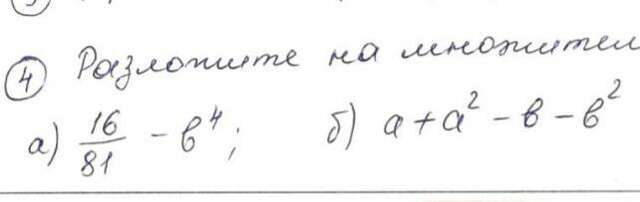 ④ Разложите на множител
а) 16/81 - в⁴; б) а + а² - в - в²